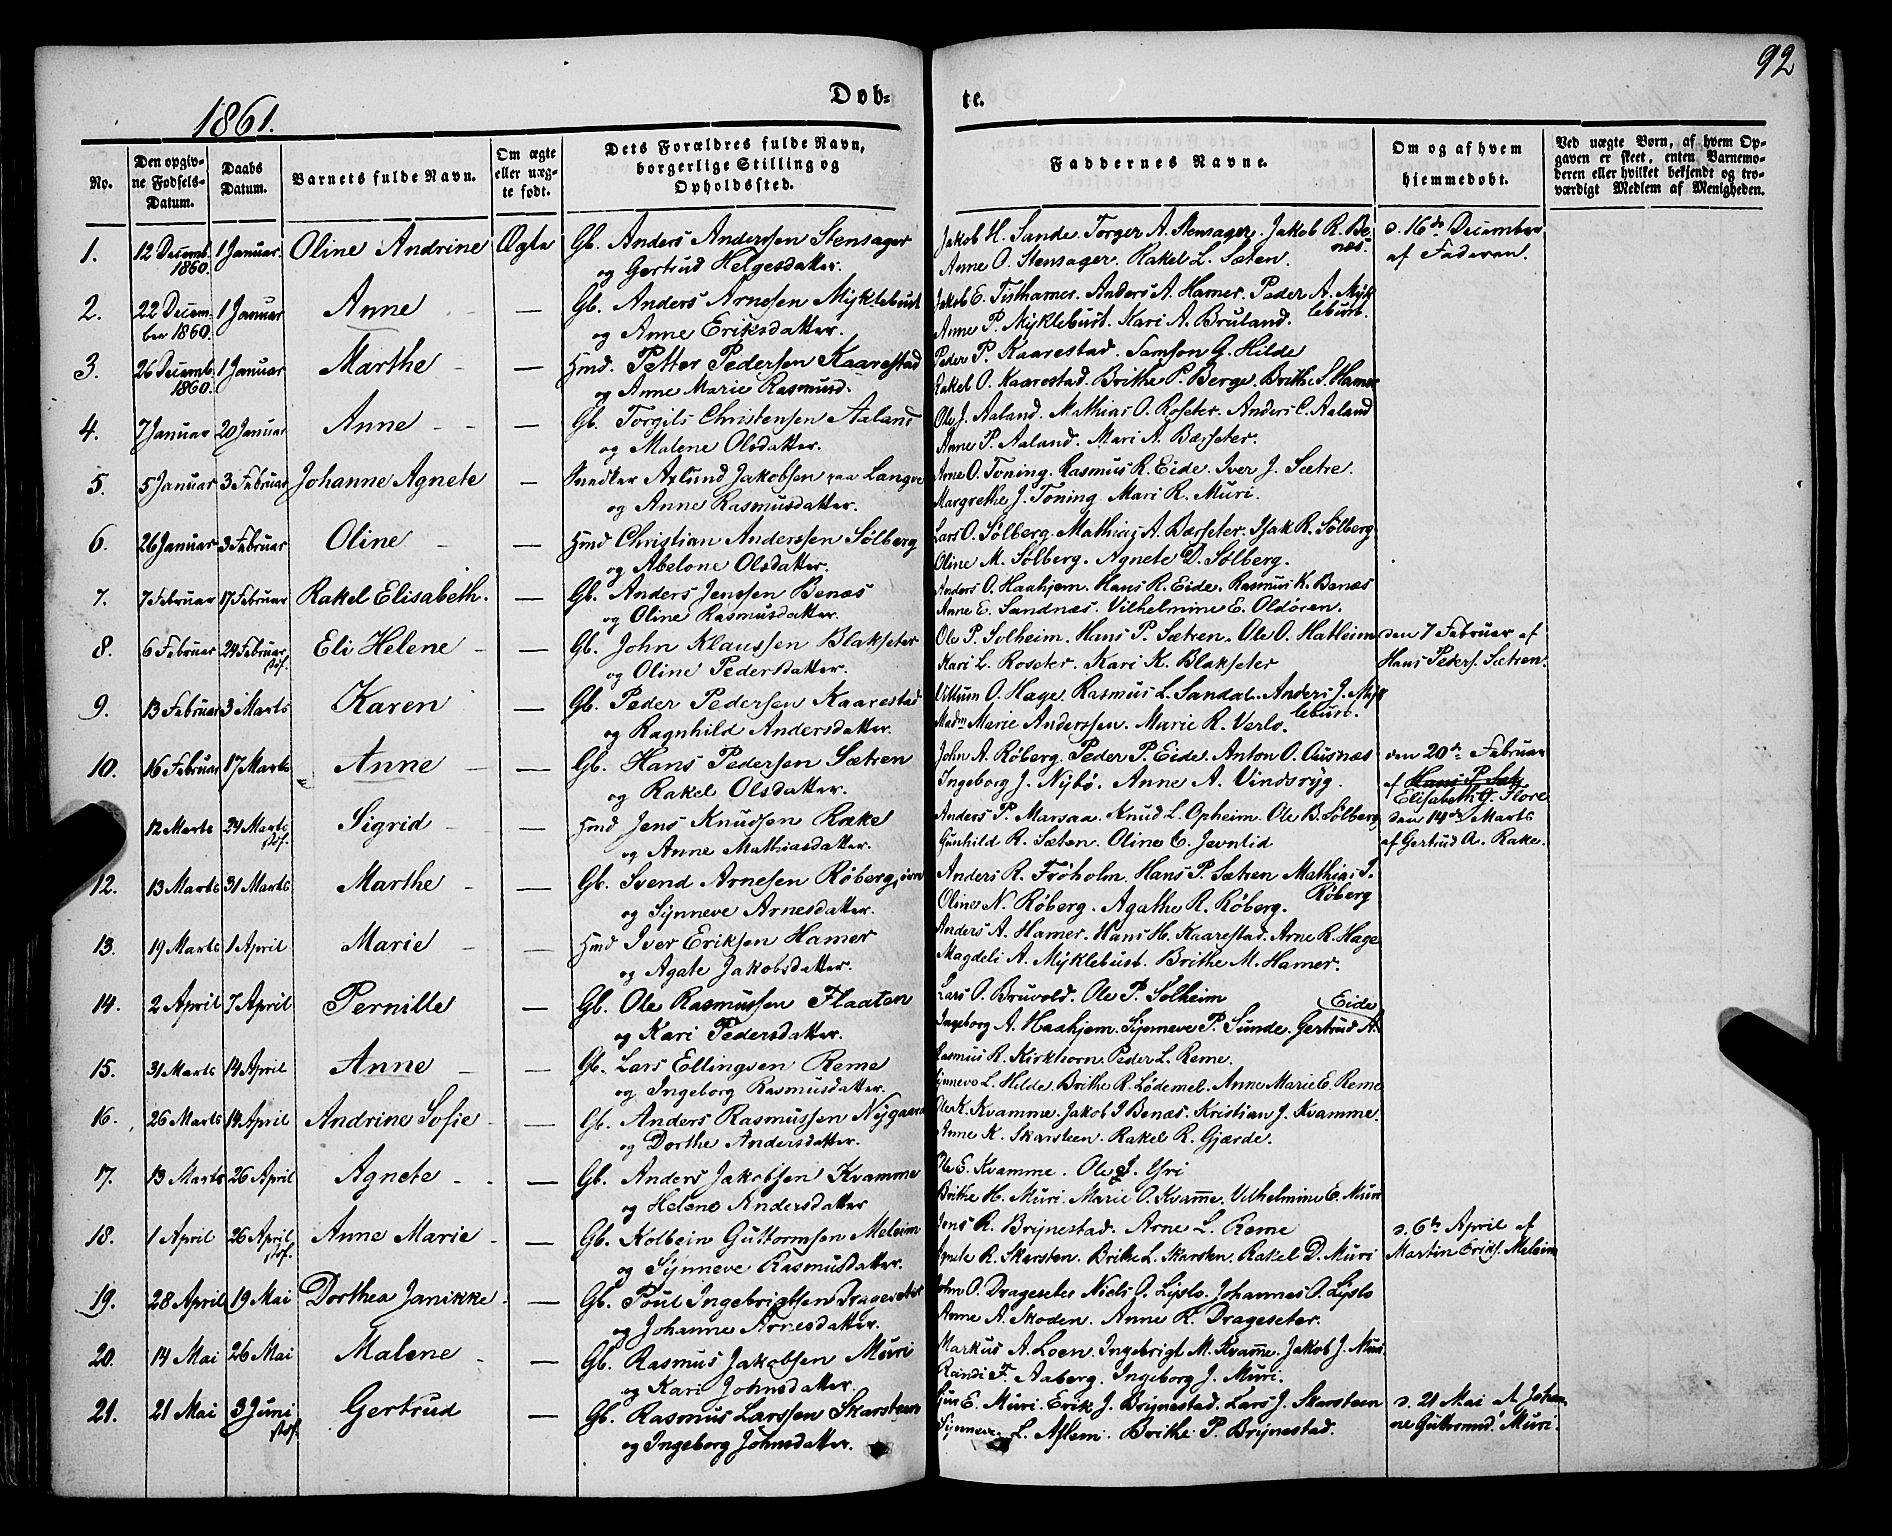 92
1861.
Døb-
te.
No.
Den opgiv-
ne Fødsels-
Datum.
Daabs
Datum.
Barnets fulde Navn.
Om ægte
eller uæg-
te født.
Dets Forældres fulde Navn,
borgerlige Stilling og
Opholdssted.
Faddernes Navne.
Om og af hvem
hjemmedøbt.
Ved uægte Børn, af hvem Op-
gaven er skeet, enten Barnemo-
deren eller hvilket bekjendt og tro-
værdigt Medlem af Menigheden.
1. 12 Decemb. 1860. 1 Januar. Oline Andrine Ægte Gb. Anders Anderssen Stensager
og Gertrud Helgesdatter.
Jakob H. Sande. Torger A. Stensager. Jakob R. Be-
næs.
Anne O. Stensager. Rakel L. Sæten.
d. 16de December
af Faderen.
2. 22 Decem-
ber 1860. 1 Januar Anne — Gb. Anders Arnesen Myklebust
og Anne Eriksdatter.
Jakob E. Tisthamer. Anders A. Hamer. Peder A. Myk
lebust.
Anne P. Myklebust. Kari A. Bruland.
3. 26 Decemb.
1860. 1 Januar Marthe — Hmd. Petter Pedersen Kaarestad
og Anne Marie Rasmusd.
Peder P. Kaarestad. Samson G. Hilde
Rakel O. Kaarestad. Brithe P. Berge. Brithe S. Hamer
4. 7 Januar 20 Januar Anne — Gb. Torgils Christensen Aaland
og Malene Olsdatter.
Ole J. Aaland. Mathias O. Roseter. Anders C. Aaland
Anne P. Aaland. Mari A. Bærseter.
5. 5 Januar 3 Februar Johanne Agnete — Snedker Axlund Jakobsen paa Langve
og Anne Rasmusdatter.
Arne O. Toning. Rasmus R. Eide. Iver J. Sætre.
Margrethe J. Toning. Mari R. Muri.
6. 26 Januar 3 Februar Oline — Hmd Christian Anderssen Sølberg
og Abelone Olsdatter.
Lars O. Sølberg. Mathias A. Bærseter. Isak R. Sølberg
Oline M. Sølberg. Agnete D. Sølberg.
7. 7 Februar 17 Februar Rakel Elisabeth. — Gb. Anders Jenssen Benæs
og Oline Rasmusdatter.
Anders O. Haahjem. Hans R. Eide. Rasmus K. Benæs
Anne E. Sandnæs. Vilhelmine E. Oldøren.
8. 6 Februar 24 Februar
stof. Eli Helene — Gb. John Klaussen Blakseter
og Oline Pedersdatter.
Ole P. Solheim. Hans P. Sætren. Ole O. Hatleim
Kari L. Roseter. Kari K. Blakseter
den 7 Februar af
Hans Peders. Sætren.
9. 13 Februar 3 Marts Karen — Gb. Peder Pedersen Kaarestad
og Ragnhild Andersdatter.
Villum O. Hage. Rasmus L. Sandal. Anders J. Myk
lebust.
Madm Marie Anderssen. Marie R. Verlo.
10. 16 Februar 17 Marts Anne — Gb. Hans Pedersen Sætren
og Rakel Olsdatter.
John A. Røberg. Peder P. Eide. Anton O. Ausnæs
Ingeborg J. Nybø. Anne A. Vindsryg.
den 20de Februar
af Hans P. Sæt
Elisabeth G. Flore
12 Marts 24 Marts
stof. Sigrid — Hmd Jens Knudsen Rake
og Anne Mathiasdatter.
Anders P. Marsaa. Knud L. Opheim. Ole B. Sølberg
Gunhild R. Sæten. Oline E. Jevntid
den 14de Marts
af Gertrud A. Rake.
12. 13 Marts 31 Marts Marthe — Gb. Svend Arnesen Røberg
og Synneve Arnesdatter.
Anders R. Frøholm. Hans P. Sætren Mathias I.
Røberg
Oline N. Røberg. Agathe R. Røberg.
13. 19 Marts 1 April Marie — Hmd Iver Eriksen Hamer
og Agate Jakobsdatter.
Anders A. Hamer. Hans H. Kaarestad. Arne R. Hage
Magdeli A. Myklebust. Brithe M. Hamer.
14. 2 April 7 April Pernille — Gb. Ole Rasmussen Flaaten
og Kari Pedersdatter.
Lars O. Bruvold. Ole P. Solheim
Eide
Ingeborg A. Haahjem. Synneve P. Sunde. Gertrud A.
15. 31 Marts 14 April Anne — Gb. Lars Ellingsen Reme
og Ingeborg Rasmusdatter.
Rasmus R. Kirkhorn. Peder L. Reme.
Synneve L. Hilde. Brithe R. Lødemel. Anne Marie E. Reme
16. 26 Marts 14 April Andrine Sofie — Gb. Anders Rasmussen Nygaard
og Dorthe Andersdatter.
Ole K. Kvamme. Jakob J Benæs. Kristian J. Kvamme.
Anne K. Skarsteen. Rakel R. Gjærde.
17. 13 Marts 26 April Agnete — Gb. Anders Jakobsen Kvamme
og Helene Andersdatter
Ole E. Kvamme. Ole J. Yri
Brithe H. Muri. Marie O. Kvame. Vilhelmine E. Muri
18. 1 April 26 April
stof. Anne Marie — Gb. Kolbein Guttormsen Meleim
og Synneve Rasmusdatter.
Jens R. Brynestad. Arne L. Reme
Agnete R. Skarsten. Brithe L. Skarsten. Rakel D. Muri
d. 6te April af
Martin Eriks. Meleim
19. 28 April 19 Mai Dorthea Janikke — Gb. Poul Ingebrigtsen Drageseter
og Johanne Arnesdatter.
John O. Drageseter Niels O. Lyslo. Johannes O. Lyslo
Anne A. Skoden. Anne R. Drageseter.
20. 14 Mai 26 Mai Malene — Gb. Rasmus Jakobsen Muri
og Kari Johnsdatter.
Markus A. Loen. Ingebrigt M. Kvame. Jakob J. Muri
Randi F. Aaberg. Ingeborg J. Muri.
21. 21 Mai 3 Juni
stof. Gertrud — Gb. Rasmus Larssen Skarsteen
og Ingeborg Johnsdatter.
E. Muri. Erik J. Brynestad. Lars J. Skarsteen
Synneve L. Aflem. Brithe P. Brynestad.
d. 21 Mai af Johan-
ne Guttormsd. Muri.